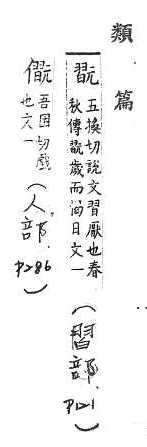 類篇
翫 五換切說文習厭也春
秋傳翫歲而㵣日文一
(習部. P121)
俬 吾困切戲
也文一
(人部. P286)